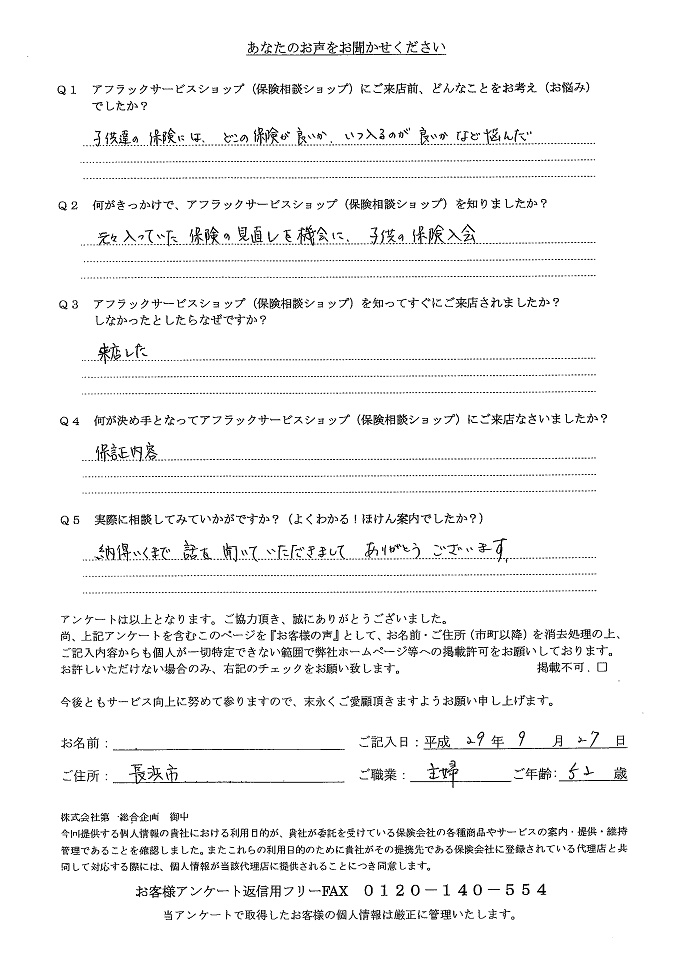 あなたのお声をお聞かせください
Q1 アフラックサービスショップ（保険相談ショップ）にご来店前、どんなことをお考え（お悩み）
でしたか？
子供達の保険には、どこの保険が良いか、いつ入るのが良いかなど悩んだ
Q2 何がきっかけで、アフラックサービスショップ（保険相談ショップ）を知りましたか？
元々入っていた保険の見直しを機会に、子供の保険入会
Q3 アフラックサービスショップ（保険相談ショップ）を知ってすぐにご来店されましたか？
しなかったとしたらなぜですか？
来店した
Q4 何が決め手となってアフラックサービスショップ（保険相談ショップ）にご来店なさいましたか？
保証内容
Q5 実際に相談してみていかがですか？（よくわかる！ほけん案内でしたか？）
納得いくまで話を聞いていただきましてありがとうございます。
アンケートは以上となります。ご協力頂き、誠にありがとうございました。
尚、上記アンケートを含むこのページを『お客様の声』として、お名前・ご住所（市町以降）を消去処理の上、
ご記入内容からも個人が一切特定できない範囲で弊社ホームページ等への掲載許可をお願いしております。
お許しいただけない場合のみ、右記のチェックをお願い致します。 掲載不可．□
今後ともサービス向上に努めて参りますので、末永くご愛顧頂きますようお願い申し上げます。
お名前： ご記入日：平成 29 年 9 月 27 日
ご住所： 長浜市 ご職業： 主婦 ご年齢： 52 歳
株式会社第一総合企画 御中
今回提供する個人情報の貴社における利用目的が、貴社が委託を受けている保険会社の各種商品やサービスの案内・提供・維持
管理であることを確認しました。またこれらの利用目的のために貴社がその提携先である保険会社に登録されている代理店と共
同して対応する際には、個人情報が当該代理店に提供されることにつき同意します。
お客様アンケート返信用フリーFAX 0120－140－554
当アンケートで取得したお客様の個人情報は厳正に管理いたします。